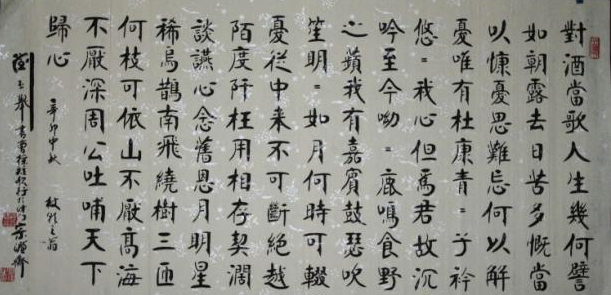 對酒當歌人生幾何譬
如朝露去日苦多慨當
以慷憂思難忘何以解
憂唯有杜康青=子衿
悠=我心但焉君故沉
吟至今呦=鹿鳴食野
之蘋我有嘉賓鼓瑟吹
笙明=如月何時可輟
憂從中来不可斷絕越
陌度阡枉用相存契闊
談讌心念舊恩月明星
稀烏鵲南飛繞樹三匝
何枝可依山不厭高海
不厭深周公吐哺天下
歸心 辛卯中秋
書曹操短歌行於